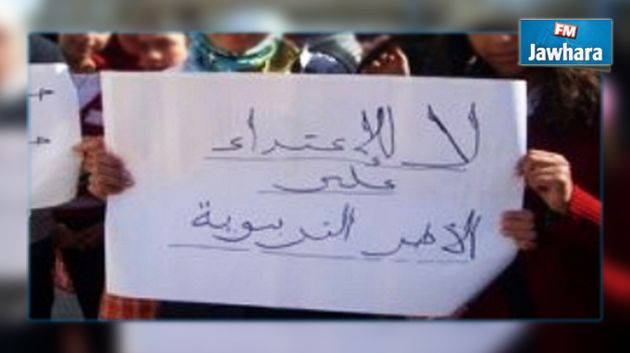 FM
Jawhara
لا للإعتداء
على
الاسر التربوية